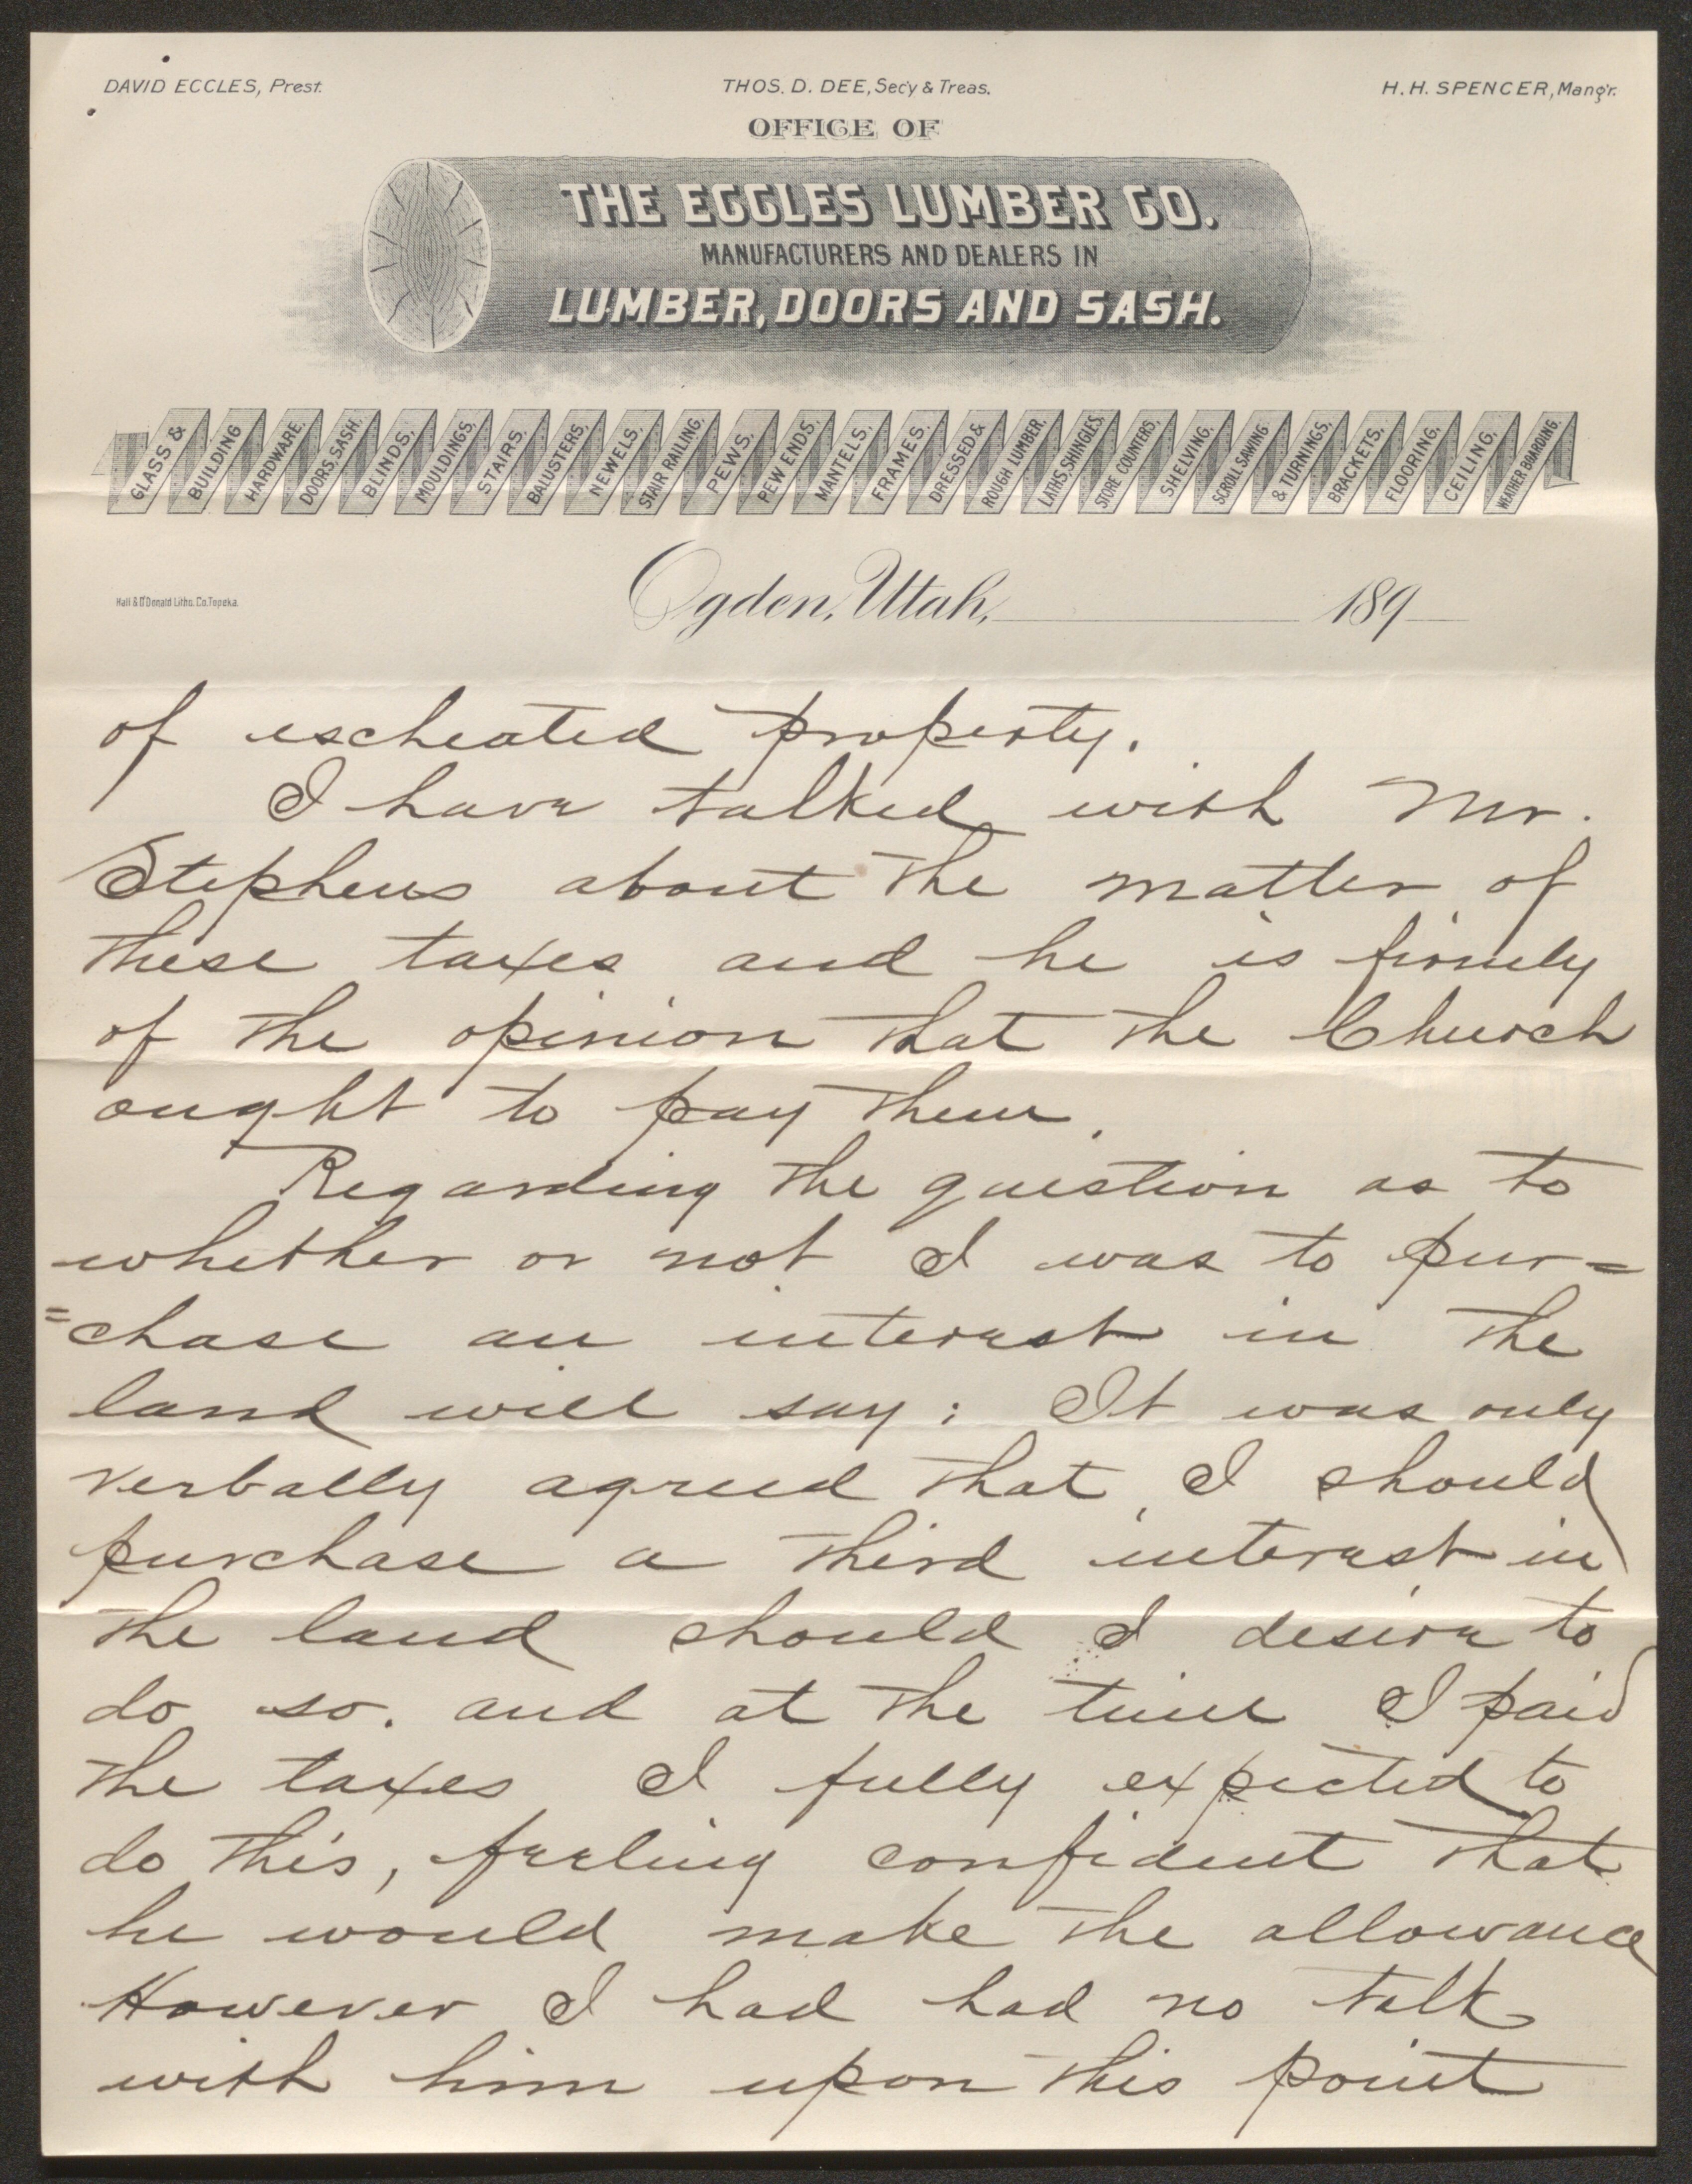 DAVID ECCLES, Prest. THOS. D. DEE, Sec'y & Treas. H. H. SPENCER, Mang'r.
OFFICE OF
THE ECCLES LUMBER CO.
MANUFACTURERS AND DEALERS IN
LUMBER, DOORS AND SASH.
GLASS & BUILDING HARDWARE. DOORS, SASH, BLINDS, MOULDINGS, STAIRS, BALUSTERS, NEWELS, STAIR RAILING, PEWS, PEW ENDS, MANTELS, FRAMES, DRESSED & ROUGH LUMBER, LATHS, SHINGLES, STORE COUNTERS, SHELVING, SCROLL SAWING & TURNINGS, BRACKETS, FLOORING, CEILING, WEATHER BOARDING.
Hall & O'Donald Litho. Co. Topeka.
Ogden, Utah, 189
of escheated property.
I have talked with Mr.
Stephens about the matter of
these taxes and he is firmly
of the opinion that the Church
ought to pay them.
Regarding the question as to
whether or not I was to pur=
=chase an interest in the
land will say: It was only
verbally agreed that I should
purchase a third interest in
the land should I desire to
do so. and at the time I paid
the taxes I fully expected to
do this, feeling confident that
he would make the allowance
However I had had no talk
with him upon this point